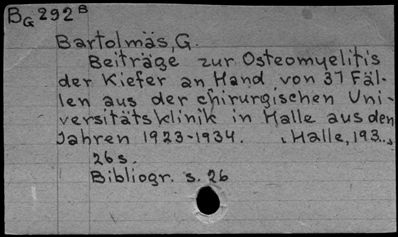 BG 292 B
Bartolmäs, G.
Beiträge zur Osteomyelitis
der Kiefer an Hand von 37 Fäl-
len aus der chirurgischen Uni-
versitätsklinik in Halle aus den
Jahren 1923-1934. Halle, 193..,
26 s.
Bibliogr. s. 26